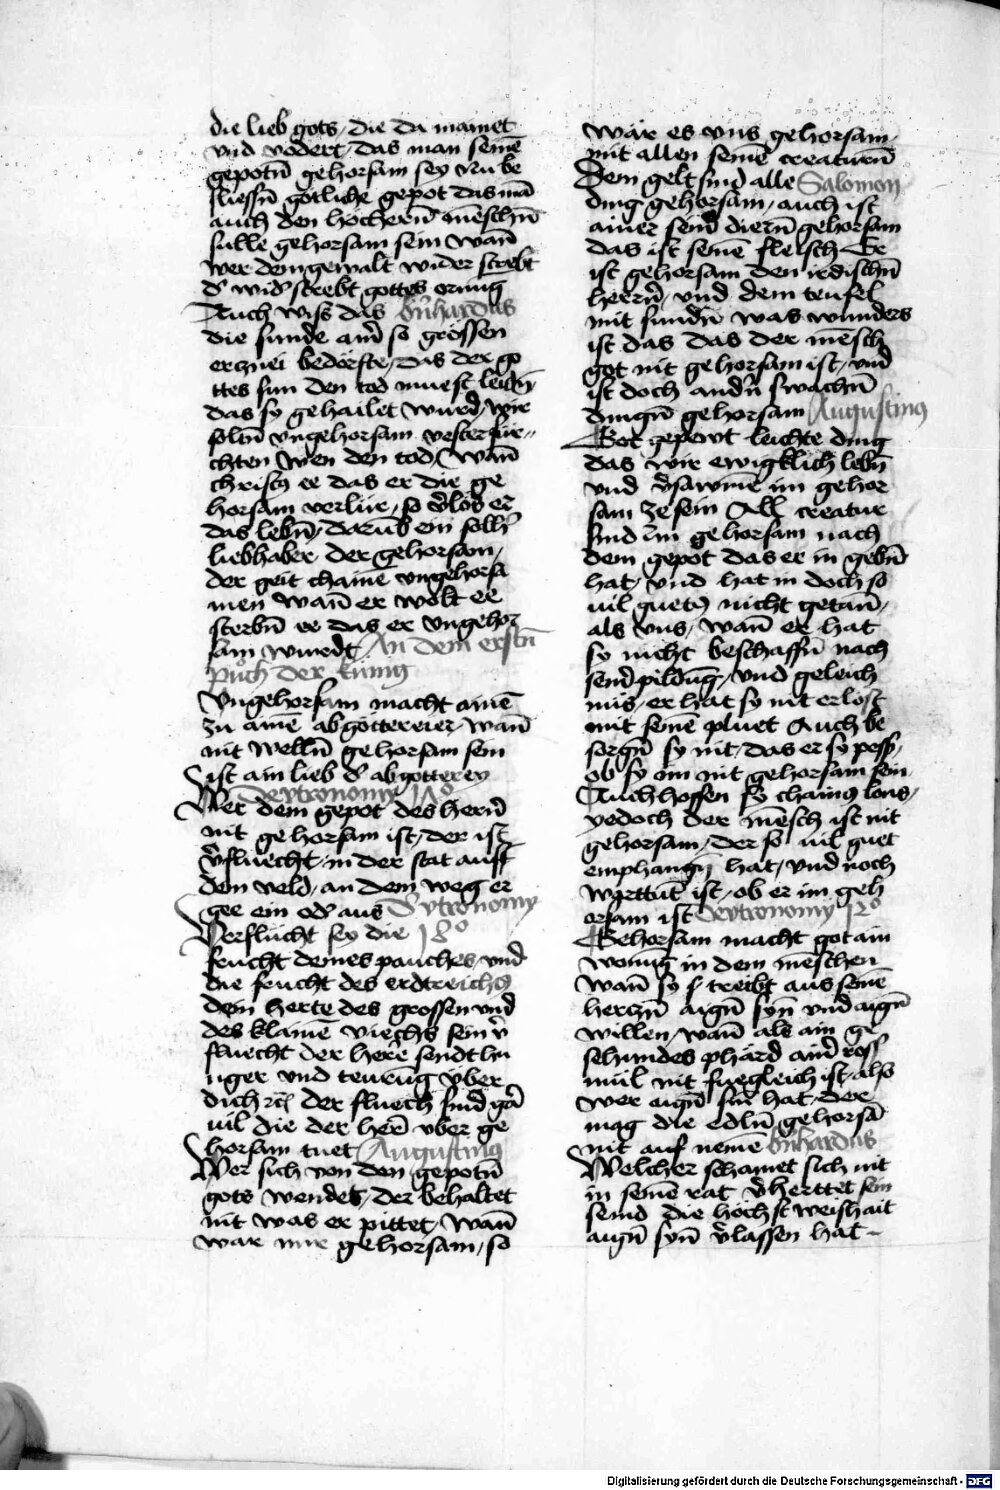 die lieb gots, die da mainet
vnd vodert, das man seinē
gepotn̄ gehorsam sey vn̄ be
sliessn̄ götliche gepot das mā
auch den höchern̄ mēschn̄
sulle gehorsam sein wan̄
wer dem gewalt wider strebt
d' wid' strebt gottes ornug
Auch wiss das Bn̄hardus
die sunde ain' so grössen
erznei bedörfte, das der go
ttes sun den tod muest leidn̄
das sy gehailet wurd, wir
solln̄ vngehorsam vester fūr
chten wen den tod, wan̄
christꝯ ee das er die ge
horsam verlür, so v'lös er
das lebn̄, darūb ein sollh'
liebhaber der gehorsam,
der geit chainē vngehorsa
men wan̄ er wolt ee
sterbn̄ ee das er vngehor
sam wurdt An dem erstn̄
puch der kunig
Vngehorsam macht ainē
zu ainē abgöttereier, wan̄
nit welln̄ gehorsam sein
ist ain lieb d' abgötterey
Devtronomy
Wer dem gepot des hern̄
nit gehorsam ist, der ist
v'fluecht, in der stat auff
dem veld, an dem weg er
gee ein od' aus Devtronomy
Verflucht sey die 18°
feucht deines pauches, vnd
die feucht des erdtreichs
dein herte des grossen vnd
des klainē viechs sein v'
fluecht der herē sendt hu
nger vnd teurūg vber
dich der fluech sind gar
uil die der her̄ vber ge
horsam tuet Augustinꝯ
Wer sich von den gepotn̄
gots wendet, der behaltet
nit was er pittet, wan̄
war mir gehorsam, so
wär es vns gehorsam,
mit allen seinē creaturn̄
Dem gelt sind alle Salomon
ding gehorsam, auch ist
ainer sein' diern̄ gehorsam
das ist seinē fleisch Er
ist gehorsam den irdischn̄
herrn̄, vnd dem teufel
mit sundn̄ was wunders
ist das das der mēsch
got nit gehorsam ist, vnd
ist doch andn̄ swachn̄
dingn̄ gehorsam Augustinꝯ
Got gepewt leichte ding
das wir ewigklich lebn̄
vnd v'sawmē im gehor
sam ze sein All creatur
sind im gehorsam nach
dem gepot das er in gebn̄
hat, vnd hat in doch so
uil guets nicht getan̄,
als vns, wan̄ er hat
sy nicht beschaffn̄ nach
sein' pildūg, vnd geleich
nüs, er hat sy nit erlöst
mit seinē pluet Auch be
sorgn̄ sy nit, das er sy pess',
ob sy im nit gehorsam sein,
Auch hoffen sy chains lons,
yedoch der mēsch ist nit
gehorsam, der so uil guet
emphangn̄ hat, vnd noch
warttūt ist, ob er im geh
orsam ist Devtronomy 12°
Gehorsam macht got ain
wonūg in dem mēschen
wan̄ sy treibt aus seinē
herczn̄ aign̄ syn̄ vnd aign̄
willen, wan̄ als ain ge
schundes phärd ain' ross
mül nit fuegleich ist, also
wer aign̄ sin̄ hat, der
mag die edln̄ gehorsā
nit auf nemē Bn̄hardus
Welcher schamet sich nit
in seinē rat v'herttet sein
seind die höchst weishait
aign̄ syn̄ v'lassen hat
Digitalisierung gefördert durch die Deutsche Forschungsgemeinschaft - DFG